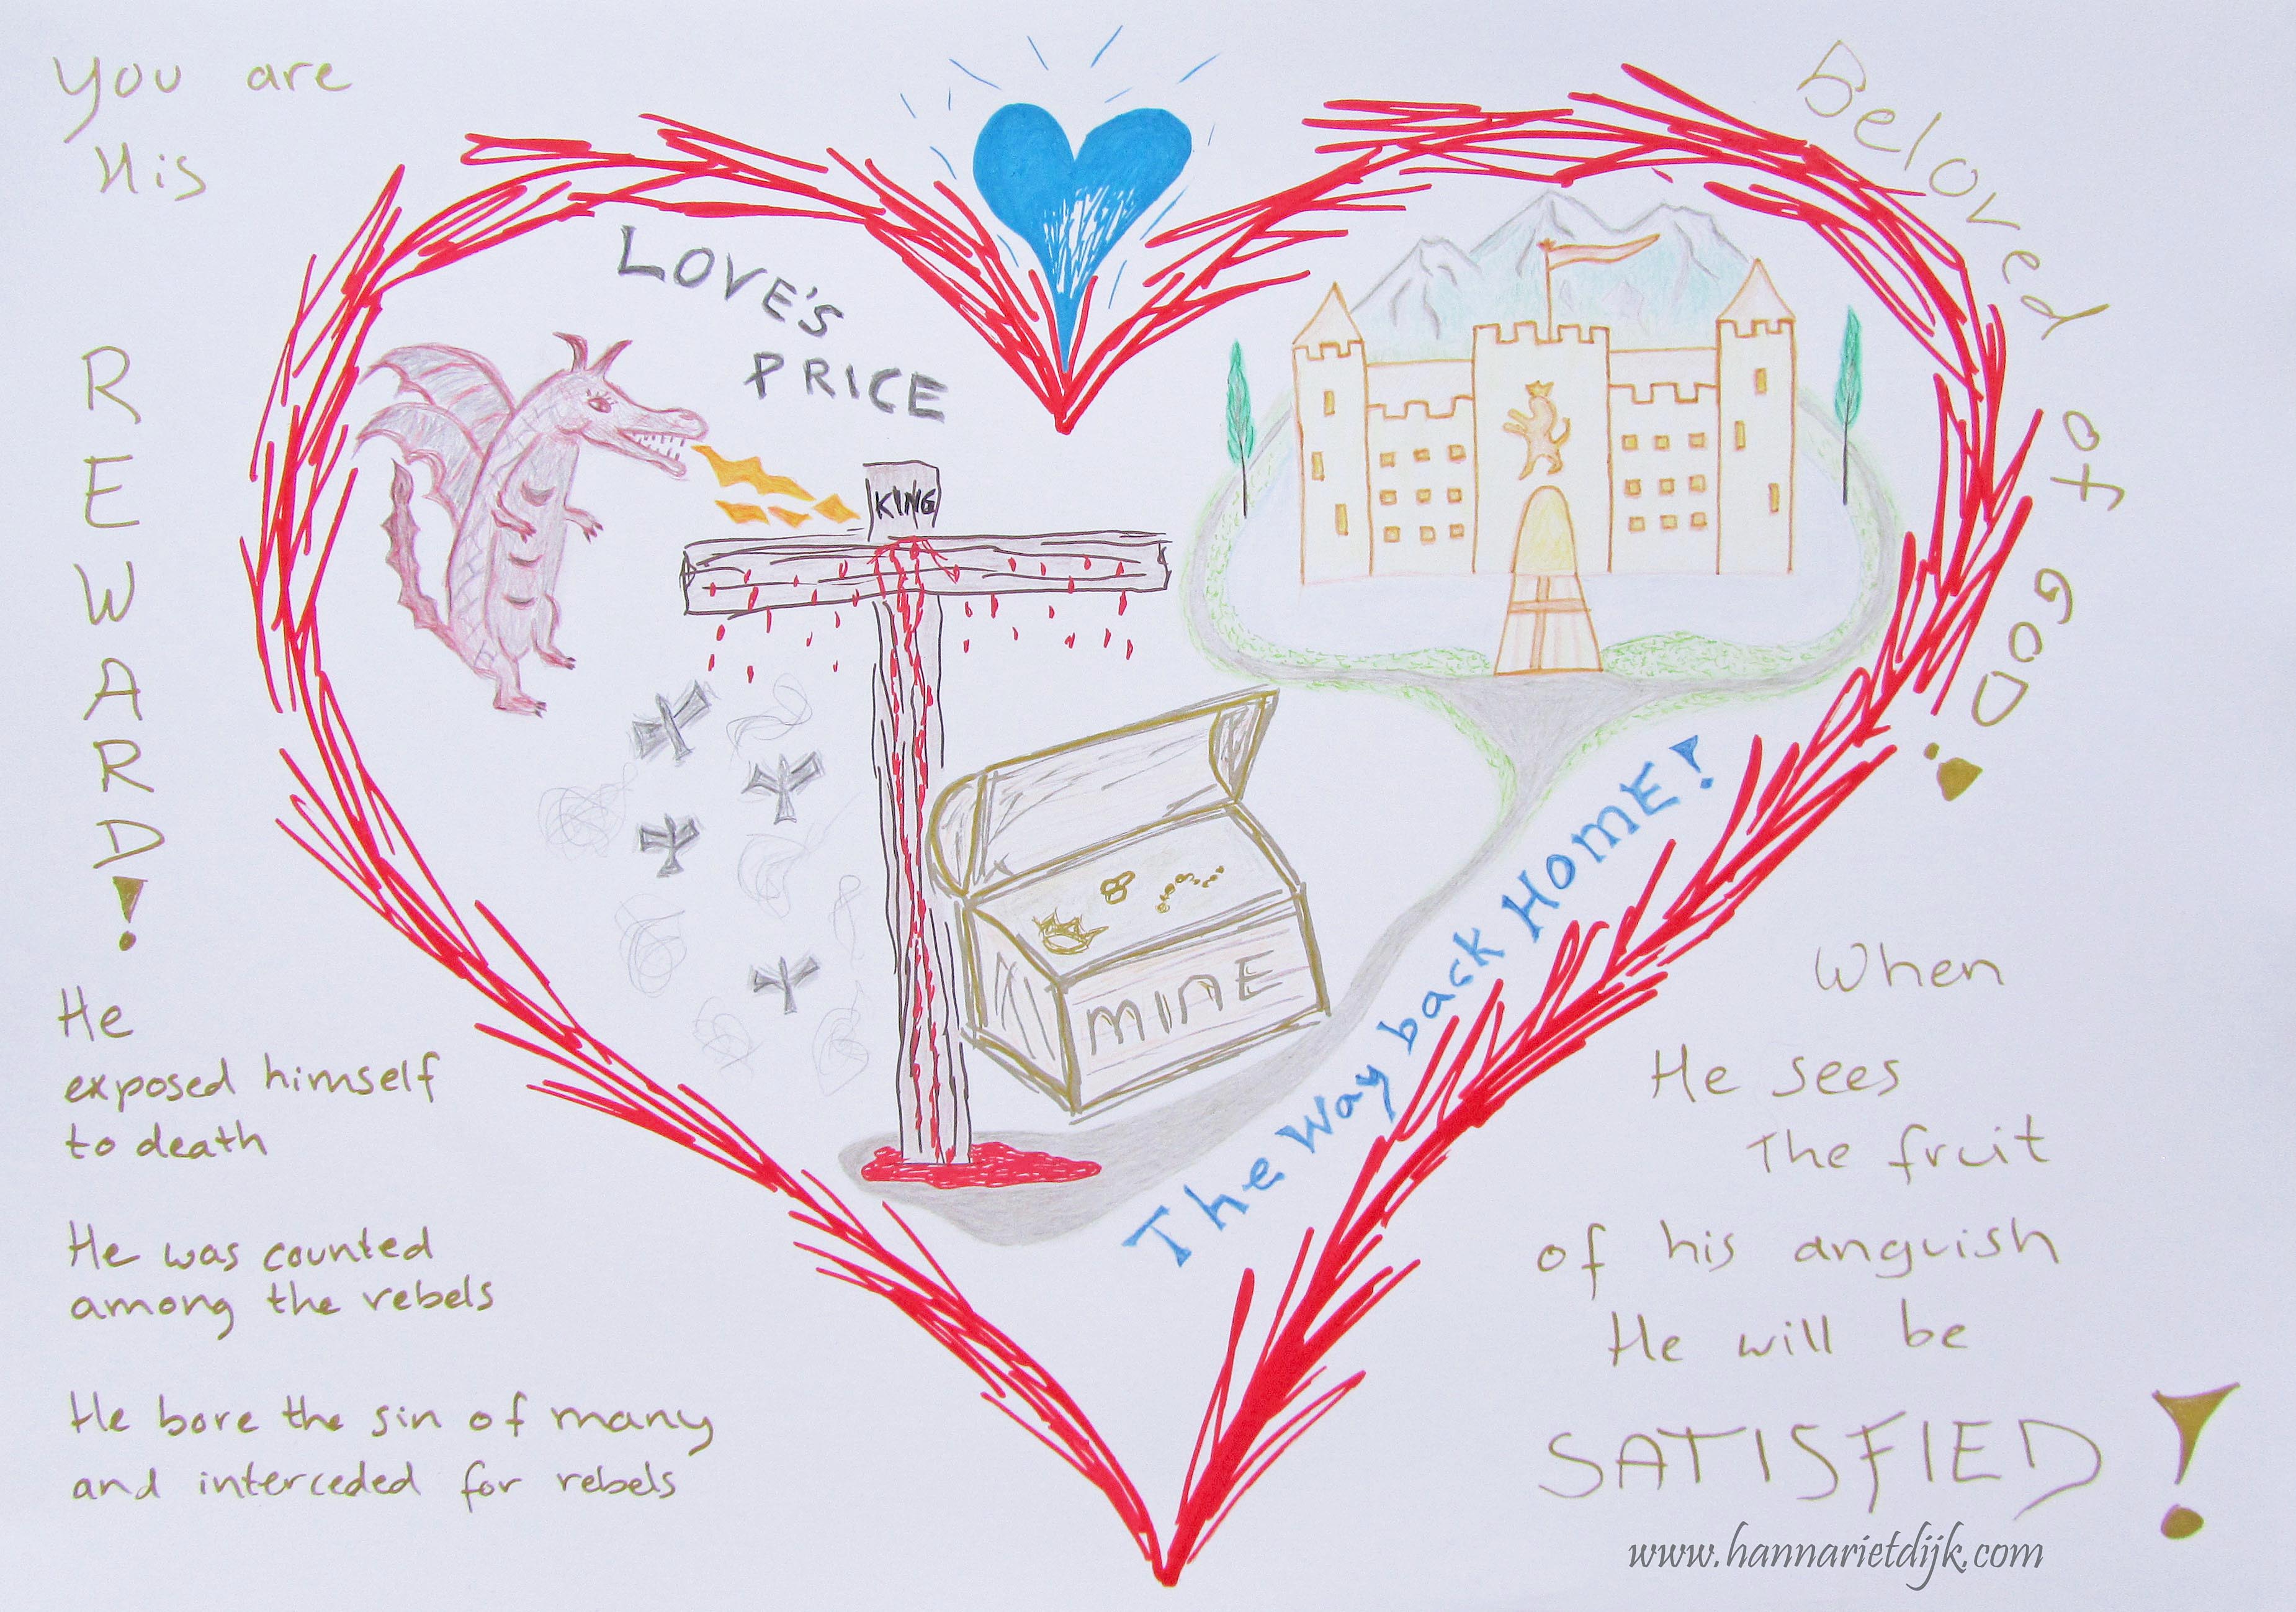 You are
His
REWARD!
He
exposed himself
to death
He was counted
among the rebels
He bore the sin of many
and interceded for rebels
LOVE'S
PRICE
KING
MINE
The Way back HOME!
Beloved of GOD!
When
He sees
The fruit
of his anguish
He will be
SATISFIED!
www.hannarietdijk.com